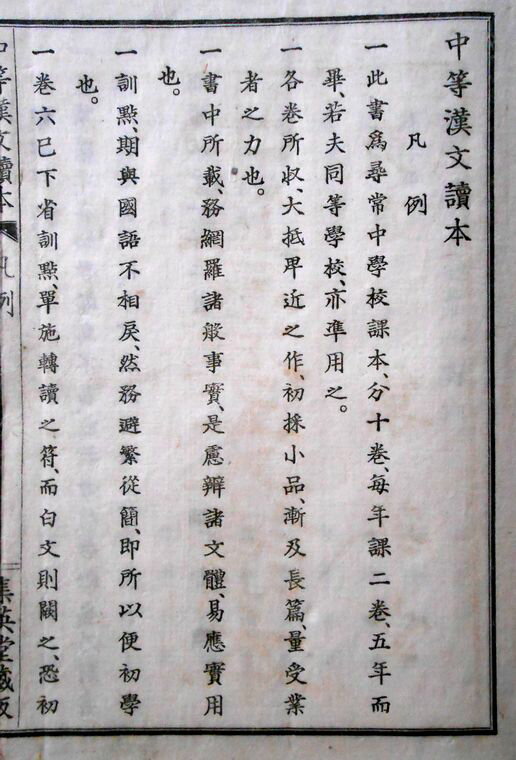 中等漢文讀本
凡例
一此書爲尋常中學校課本、分十卷、每年課二卷、五年而
畢、若夫同等學校、亦準用之。
一各卷所收、大抵卑近之作、初採小品、漸及長篇、量受業
者之力也。
一書中所載、務網羅諸般事實、是慮辨諸文體、易應實用
也。
一訓點、期與國語不相戾、然務避繁從簡、即所以便初學
也。
一卷六已下省訓點、單施轉讀之符、而白文則闕之、恐初
中等漢文讀本 凡例 集英堂藏版